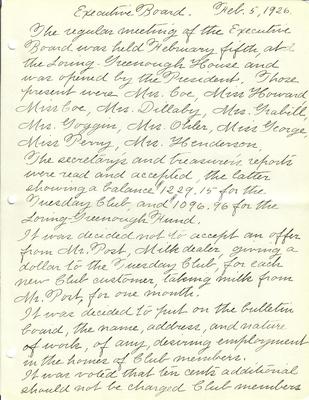 Executive Board. Feb. 5, 1926.
The regular meeting of the Executive
Board was held February fifth, at
the Loring-Greenough House and
was opened by the President. Those
present were Mrs. Coe, Miss Howard
Miss Coe, Mrs. Dillaby, Mrs. Grabill,
Mrs. Goggin, Mrs. Ohler, Miss George,
Miss Perry, Mrs. Henderson.
The secretary's and treasurer's reports
were read and accepted, the latter
showing a balance 1229.15 for the
Tuesday Club, and 1096.96 for the
Loring-Greenough Fund.
It was decided not to accept an offer
from Mr. Post, Milk dealer, giving a
dollar to the Tuesday Club, for each
new Club customer, taking milk from
Mr. Post, for one month.
It was decided to put on the bulletin
board, the name, address, and nature
of work, of any, desiring employment
in the homes of Club members.
It was voted that ten cents additional
should not be charged Club members